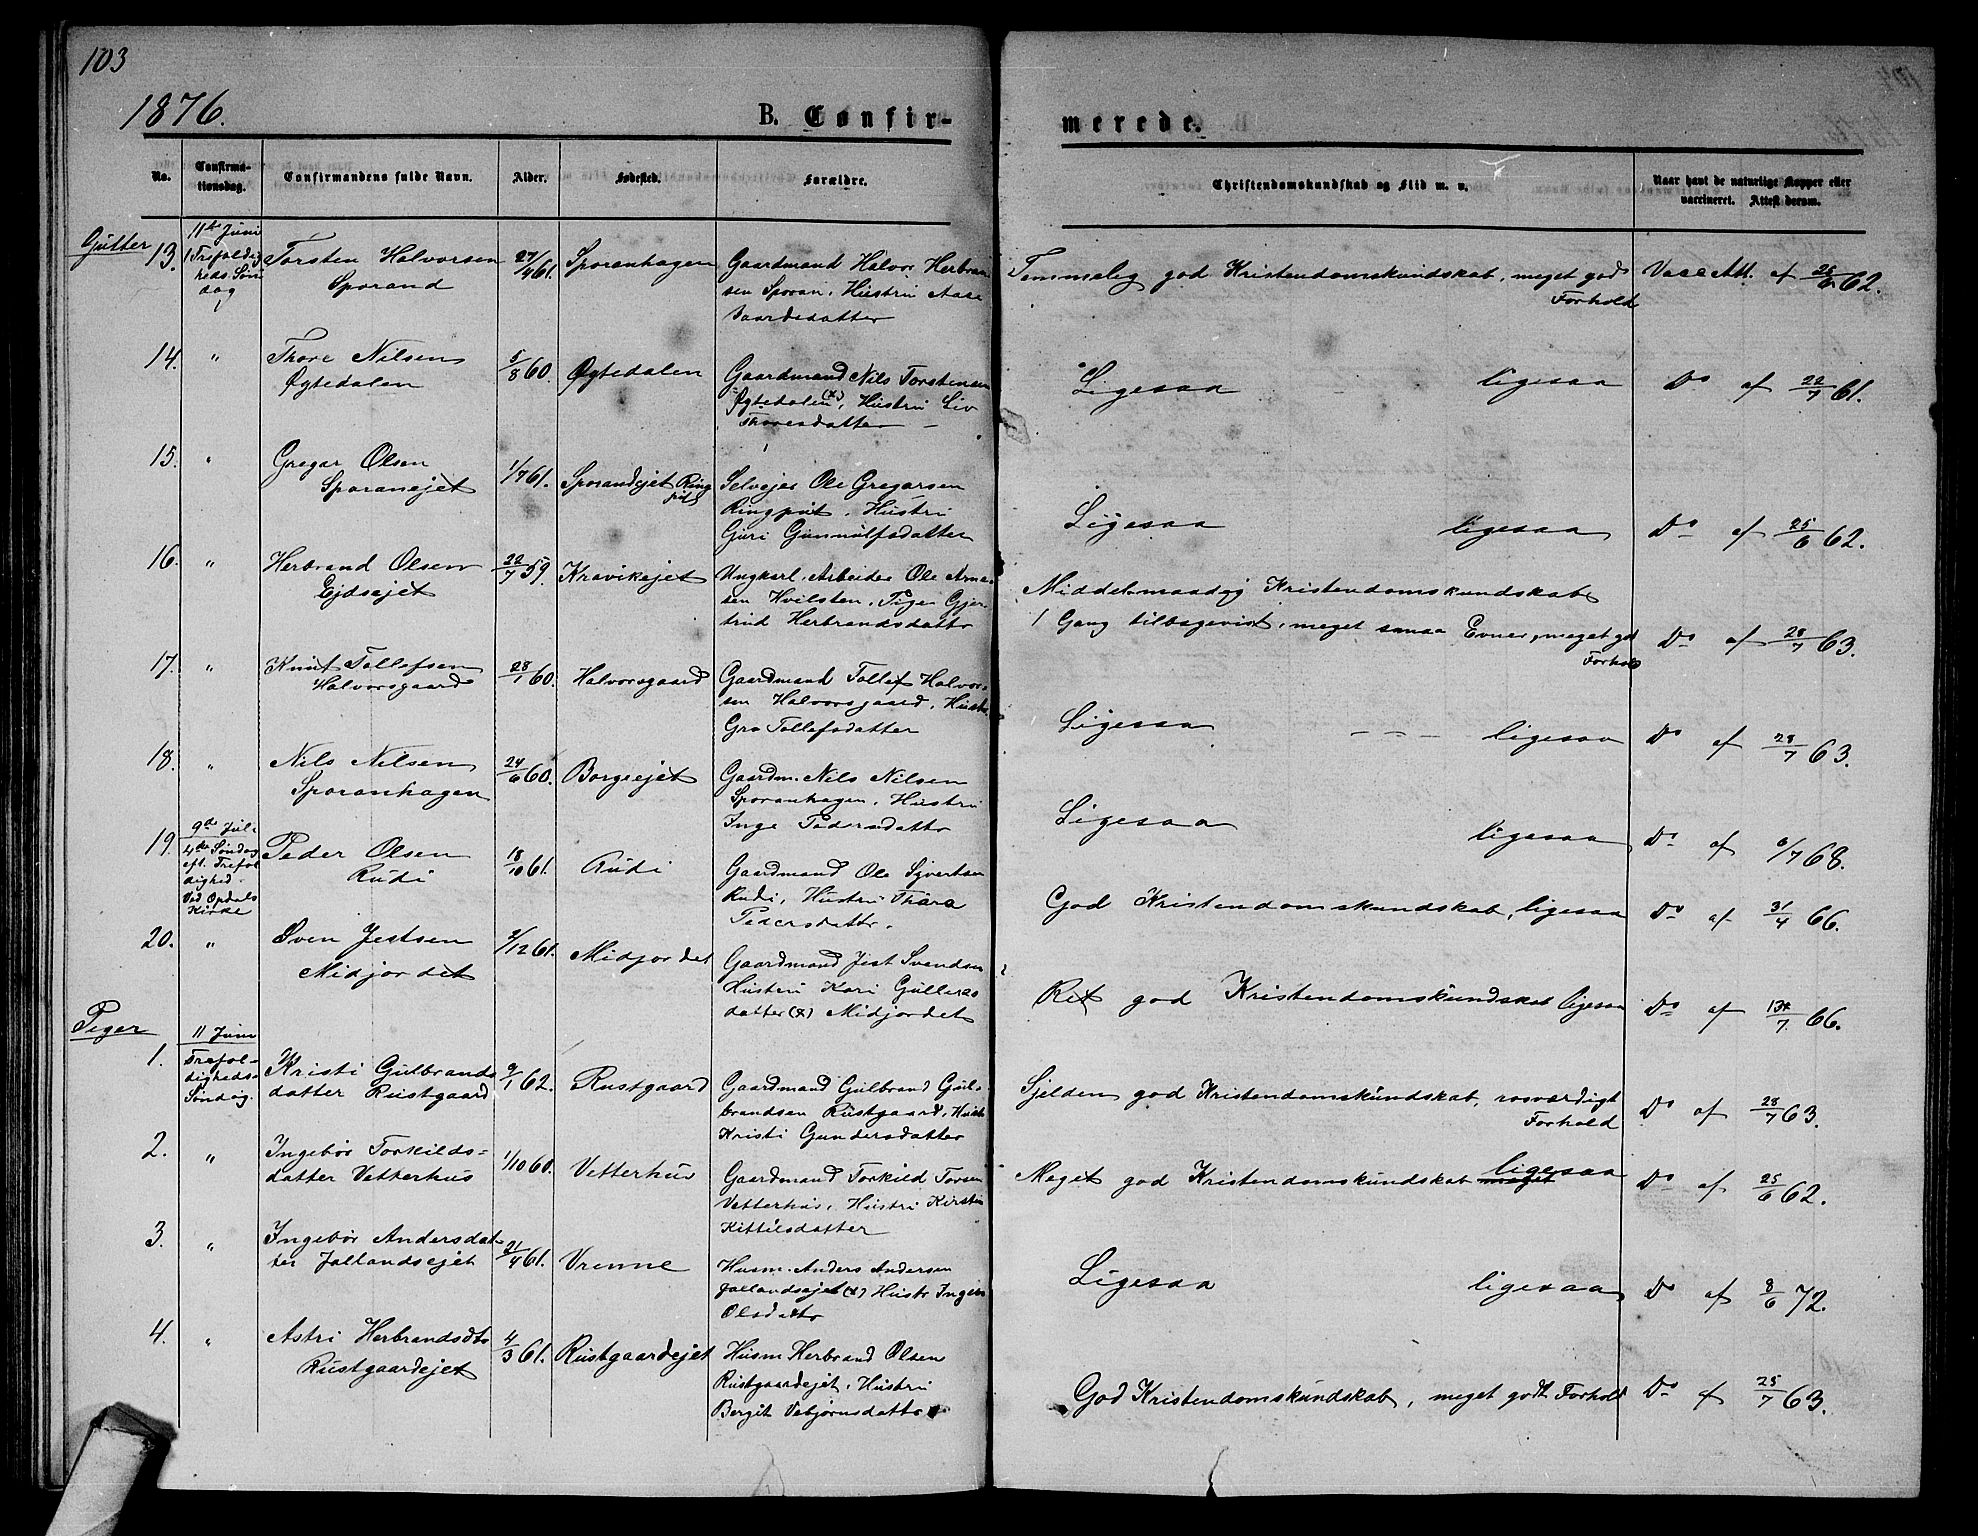 103
1876.
B. Confir-
merede.
No.
Confirma-
tionsdag.
Confirmandens fulde Navn.
Alder.
Fødested.
Forældre.
Christendomskundskab og Flid m. v.
Naar havt de naturlige Kopper eller
vaccineret. Attest derom.
Gutter
13.
11te Juni
Trefoldig
heds Søn
dag
Torsten Halvorsen
Sporand
27/4 61.
Sporanhagen
Gaardmand Halvor Herbran
sen Sporan, Hustru Aase
Vaardedatter
Temmelig god Kristendomskundskab, meget god
Forhold
Vacc Att. af 25/6 62.
14.
"
Thore Nilsen
Øgtedalen
5/8 60.
Øgtedalen
Gaardmand Nils Torstensen
Øgtedalen (x), Hustru Liv
Thoresdatter
Ligesaa ligesaa
Do af 22/7 61.
15.
"
Gregar Olsen
Sporanejet
1/7 61.
Sporandejet Ring
put
Selvejer Ole Gregarsen
Ringput, Hustru
Guri Gunnulfsdatter
Ligesaa ligesaa
Do af 25/6 62.
16.
"
Herbrand Olsen
Ejdsejet
22/7 59.
Kravikejet
Ungkarl, Arbeider Ole Arne-
sen Hvilsten, Pige Gjer
trud Herbrandsdattr
Middelmaadig Kristendomskundskab
1 Gang tilbagevist, meget smaa Evner, meget god
Forhold
Do af 28/7 63.
17.
"
Knut Tollefsen
Halvorsgaard
28/1 60.
Halvorsgaard
Gaardmand Tollef Halvor-
sen Halvorsgaard, Hustru
Gro Tollefsdatter
Ligesaa - - - ligesaa
Do af 28/7 63.
18.
"
Nils Nilsen
Sporanhagen
24/6 60.
Borgeejet
Gaardm. Nils Nilsen
Sporanhagen, Hustru
Inge Pedersdattr
Ligesaa ligesaa
Do af 6/7 68.
19.
9de Juli
4de Søndag
eft. Trefol
dighed.
Ved Opdals
Kirke
Peder Olsen
Rudi
18/10 61.
Rudi
Gaardmand Ole Sjvertsen
Rudi, Hustru Thora
Pedersdattr.
God Kristendomskundskab, ligesaa
Do af 31/4 66.
20.
"
Sven Jestsen
Midjordet
2/12 61.
Midjordet
Gaardmand Jest Svendsen
Hustru Kari Gulleras
datter (x) Midjordet
Ret god Kristendomskundskab ligesaa
Do af 13/7 66.
Piger
1.
11 Juni
Trefol-
digheds-
Søndag.
Kristi Gulbrands
datter Rustgaard
9/1 62.
Rustgaard
Gaardmand Gulbrand Gul-
brandsen Rustgaard, Hustr
Kristi Gundersdatter
Sjelden god Kristendomskundskab, rosværdigt
Forhold
Do af 28/7 63.
2.
"
Ingebør Torkilds-
datter Vetterhus
1/10 60.
Vetterhus
Gaardmand Torkild Torsen
Vetterhus, Hustru Kirstin
Kittilsdatter
Meget god Kristendomskundskab meget ligesaa
Do af 25/6 62.
3.
"
Ingebør Andersdat-
ter Jallandsejet
21/4 61.
Vrenne
Husm. Anders Andersen
Jallandsejet (x) Hustr Ingebr
Olsdattr
Ligesaa ligesaa
Do af 8/6 72.
4.
"
Astri Herbrandsdtr
Rustgaardejet
4/3 61.
Rustgaardejet
Husm Herbrand Olsen
Rustgaardejet, Hustru
Bergit Vebjørnsdattr
God Kristendomskundskab, meget godt Forhold
Do af 25/7 63.